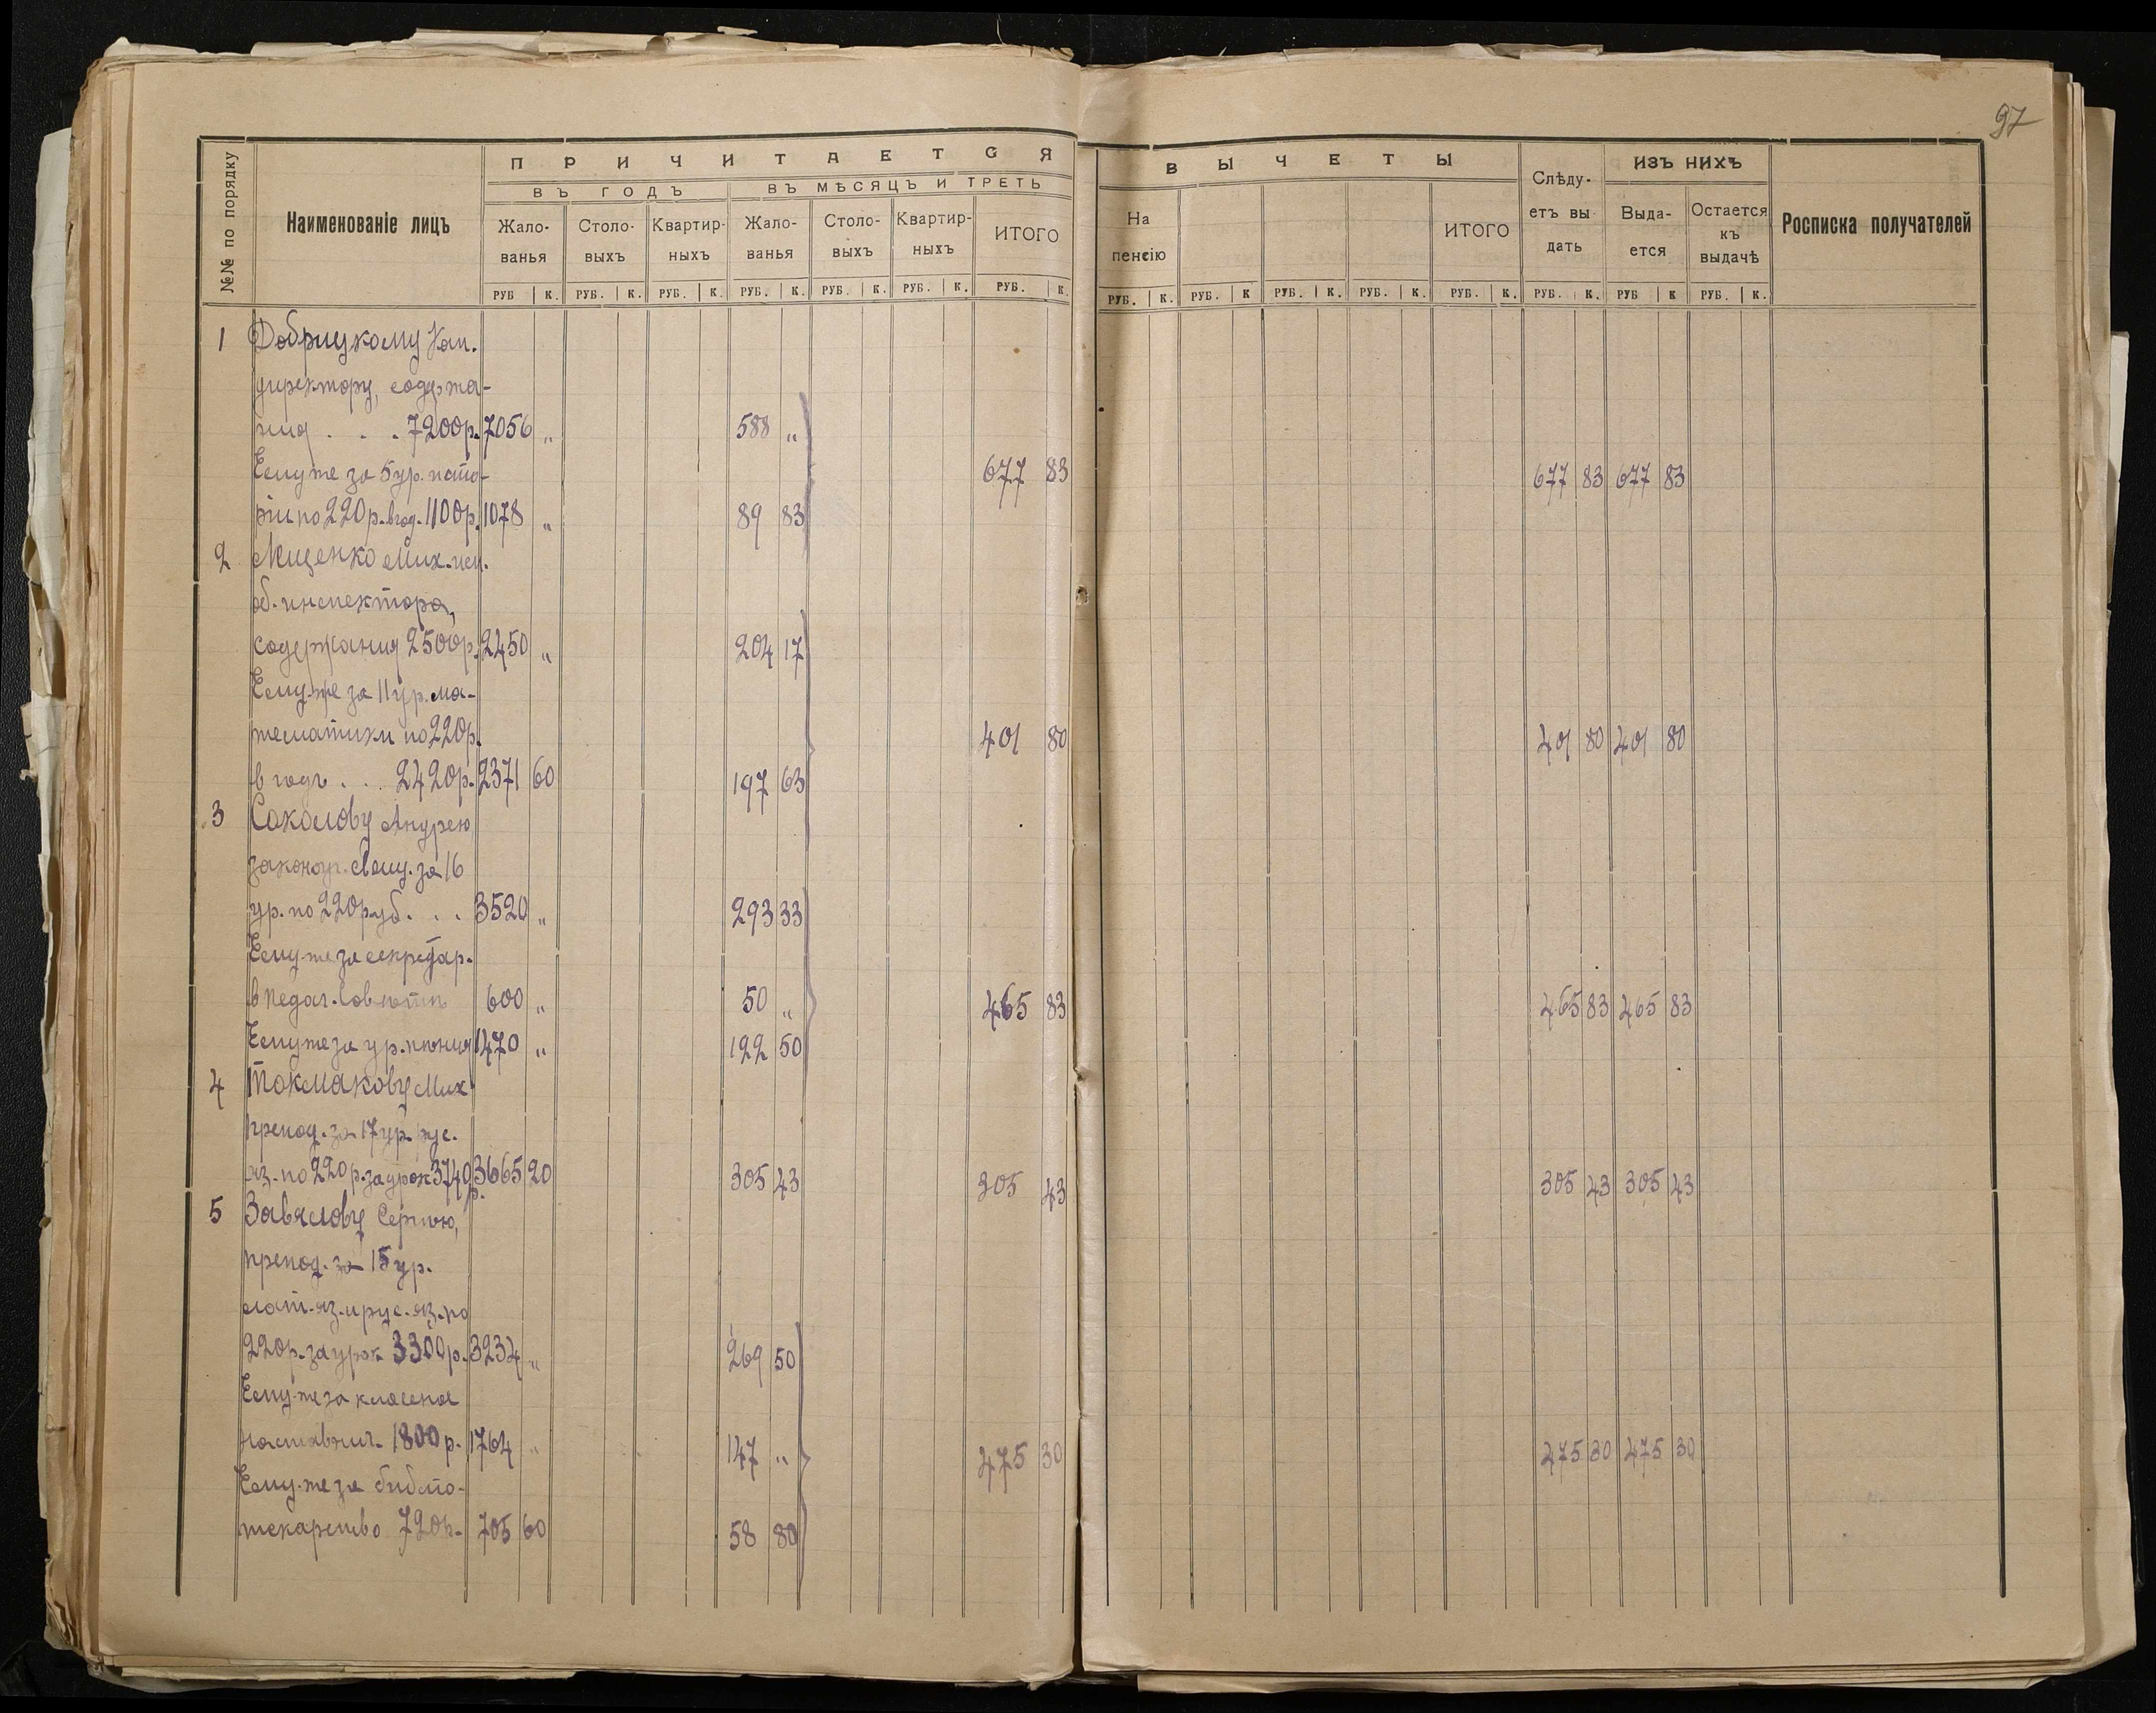 97
ПРИЧИТАЕТСЯ
ВЪ ГОДЪ ВЪ МѢСЯЦЪ И ТРЕТЬ
№№ по порядку
Наименованіе лицъ
Жало- Столо- Квартир- Жало- Столо- Квартир- ИТОГО
ванья выхъ ныхъ ванья выхъ ныхъ
РУБ К. РУБ. К. РУБ. К. РУБ. К. РУБ. К. РУБ. К. РУБ. К.
ВЫЧЕТЫ Слѣду- ИЗЪ НИХЪ
На ИТОГО етъ вы- Выда- Остается Росписка получателей
пенсію дать ется къ
выдачѣ
РУБ. К. РУБ. К РУБ. К. РУБ. К. РУБ. К. РУБ. К. РУБ К РУБ. К.
1 Добрицкому
директору, содержа-
ния . . . 7200р. 7056 „ 588 „
Ему же за 5 ур. 677 83 677 83 677 83
рии по 220 р. в год. 1100р. 1078 „ 89 83
2 Мищенко Мих. исп.
об. инспектора,
содержания 2500р. 2450 „ 204 17
Ему-же за 11 ур. ма-
тематики по 220р. 401 80 401 80 401 80
в годъ . . . 2420р. 2371 60 197 63
3 Соколову Андрею
законоуч. Свящ. за 16
ур. по 220 руб. . . 3520 „ 293 33
Ему-же за секретар.
в педаг. Совѣтѣ 600 „ 50 „ 465 83 465 83 465 83
Ему же за ур. пѣния 1470 „ 122 50
4 Токмакову Мих.
препод. за 17 ур. рус.
яз. по 220 р. за урок 3740 р. 3665 20 305 43 305 43 305 43 305 43
5 Завялову Сергѣю,
препод. за 15 ур.
лат. яз. и рус. яз. по
220р. за урок 3300р. 3234 „ 269 50
Ему-же за классное
наставнич. 1800 р. 1764 „ 147 „ 475 30 475 30 475 30
Ему-же за библіо-
текарство 720р. 705 60 58 80